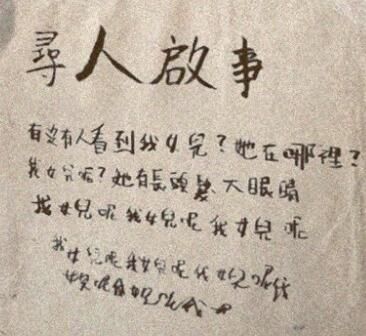 尋人啟事
有沒有人看到我女兒？她在哪裡？
我女兒呢？她有長頭髮大眼睛
我女兒呢我女兒呢我女兒呢
我女兒呢我女兒呢我女兒呢我
女兒呢我女兒呢我